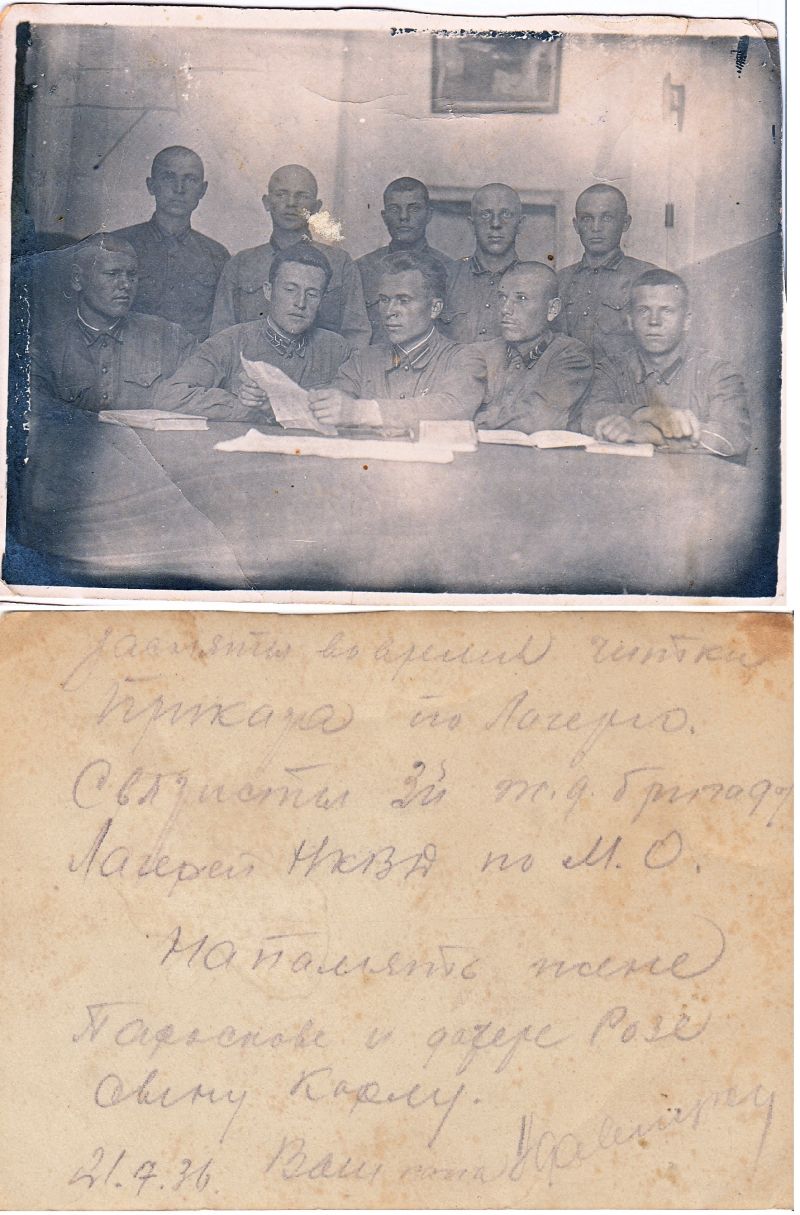 засняты во время читки
Приказа по Лагерю.
Связисты 3й ж.д. бригады
Лагерей НКВД по М.О.
На память жене
Пароскове и дочере Розе
сыну Карлу.
21.7.36. Ваш папа